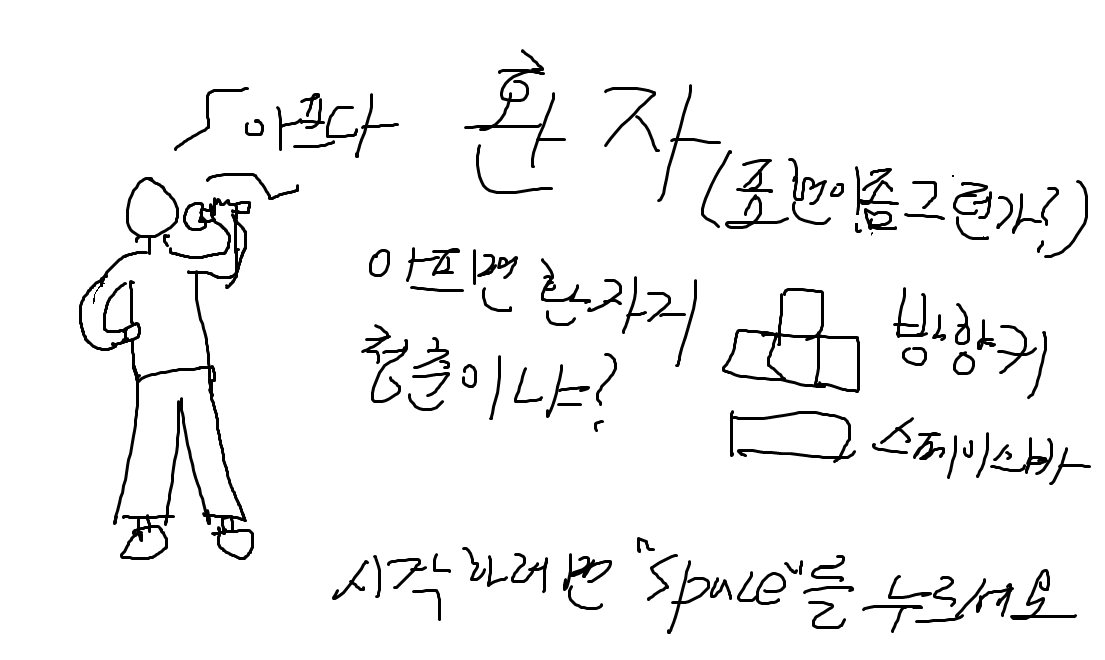 아프다 환자
(홍연이 좀 그런가?)
아프면 환자지
청춘이냐?
방향키
스페이스바
시작하려면 "space"를 누르세요